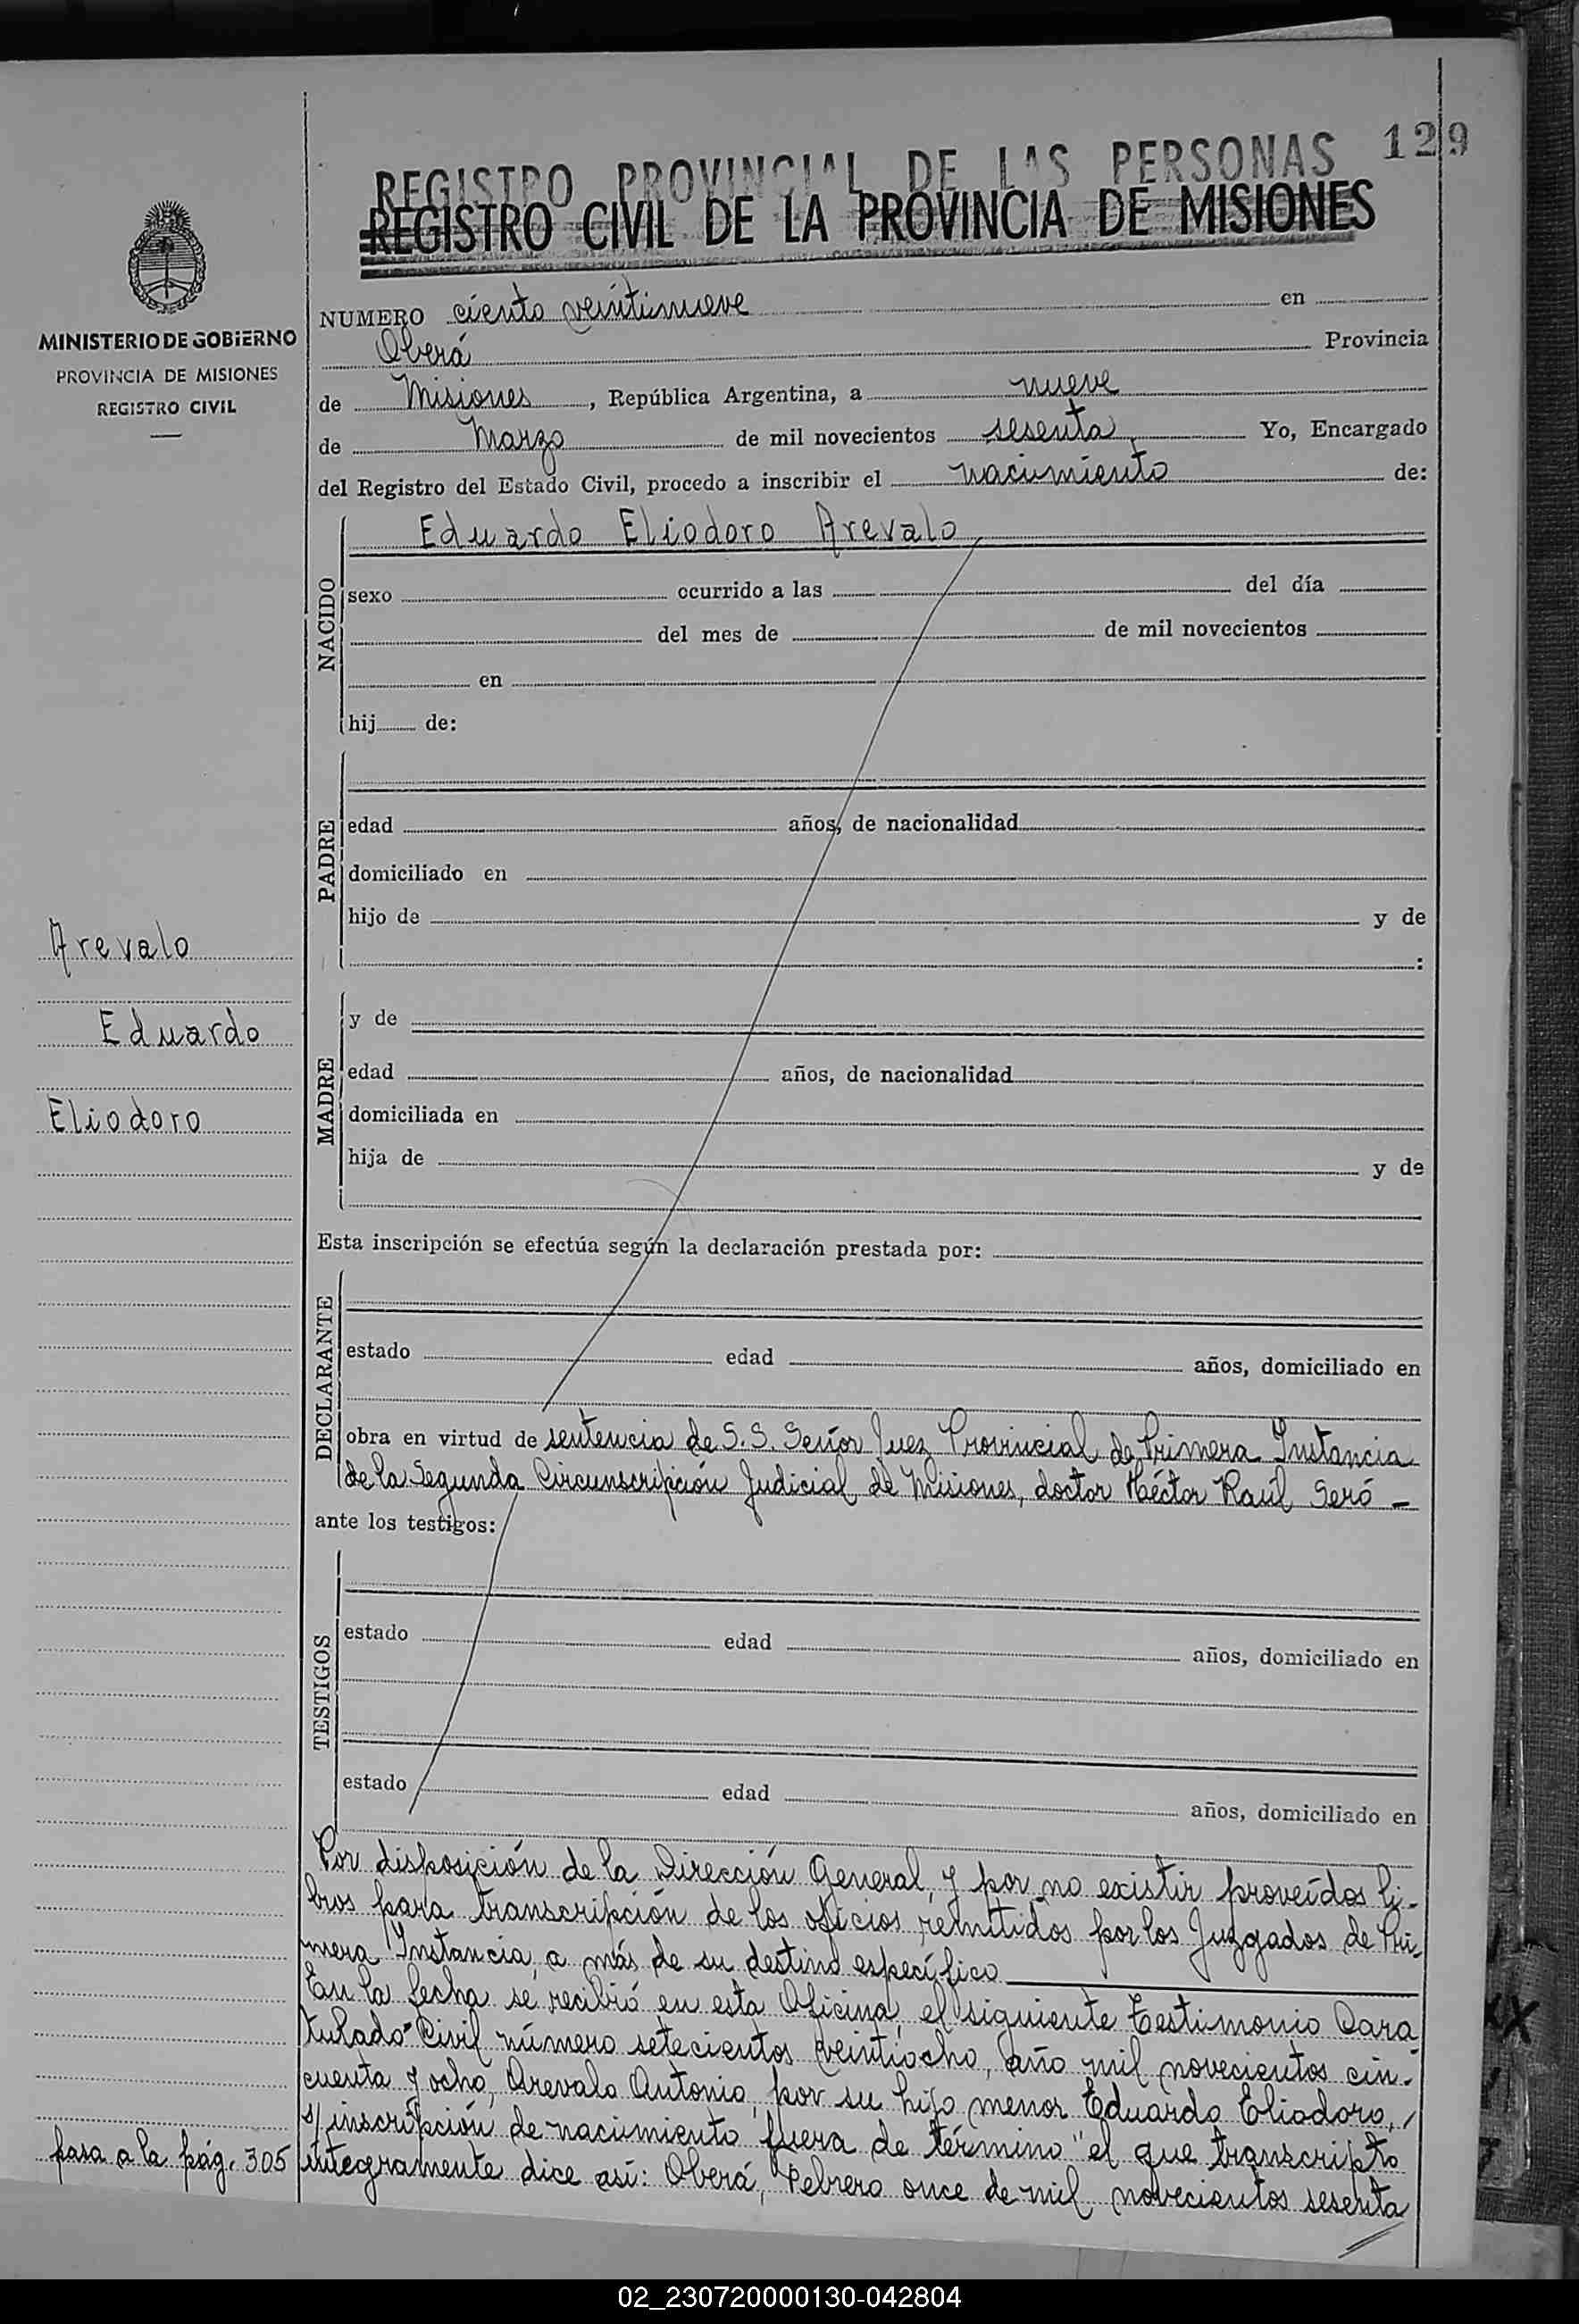 129
REGISTRO PROVINCIAL DE LAS PERSONAS
REGISTRO CIVIL DE LA PROVINCIA DE MISIONES
MINISTERIO DE GOBIERNO
PROVINCIA DE MISIONES
REGISTRO CIVIL
NUMERO ciento veintinueve en
Oberá Provincia
de Misiones, República Argentina, a nueve
de Marzo de mil novecientos sesenta, Yo, Encargado
del Registro del Estado Civil, procedo a inscribir el nacimiento de:
NACIDO
Eduardo Eliodoro Arevalo
sexo ocurrido a las del día
del mes de de mil novecientos
en
hij de:
PADRE
edad años, de nacionalidad
domiciliado en
hijo de y de
:
Arevalo
Eduardo
Eliodoro
MADRE
y de
edad años, de nacionalidad
domiciliada en
hija de y de
Esta inscripción se efectúa según la declaración prestada por:
DECLARANTE
estado edad años, domiciliado en
obra en virtud de sentencia de S.S. Señor Juez Provincial de Primera Instancia
de la Segunda Circunscripción Judicial de Misiones, doctor Héctor Raúl Seró -
ante los testigos:
TESTIGOS
estado edad años, domiciliado en
estado edad años, domiciliado en
Por disposición de la Dirección General, y por no existir proveídos li-
bros para transcripción de los oficios remitidos por los Juzgados de Pri-
mera Instancia, a más de su destino específico
En la fecha se recibió en esta Oficina, el siguiente Testimonio Cara
tulado "Civil número setecientos veintiocho, año mil novecientos cin-
cuenta y ocho, Arevalo Antonio, por su hijo menor Eduardo Eliodoro,
s/ inscripción de nacimiento fuera de término" el que transcripto
integramente dice así: Oberá, Febrero once de mil novecientos sesenta
pasa a la pág. 305
02_230720000130-042804